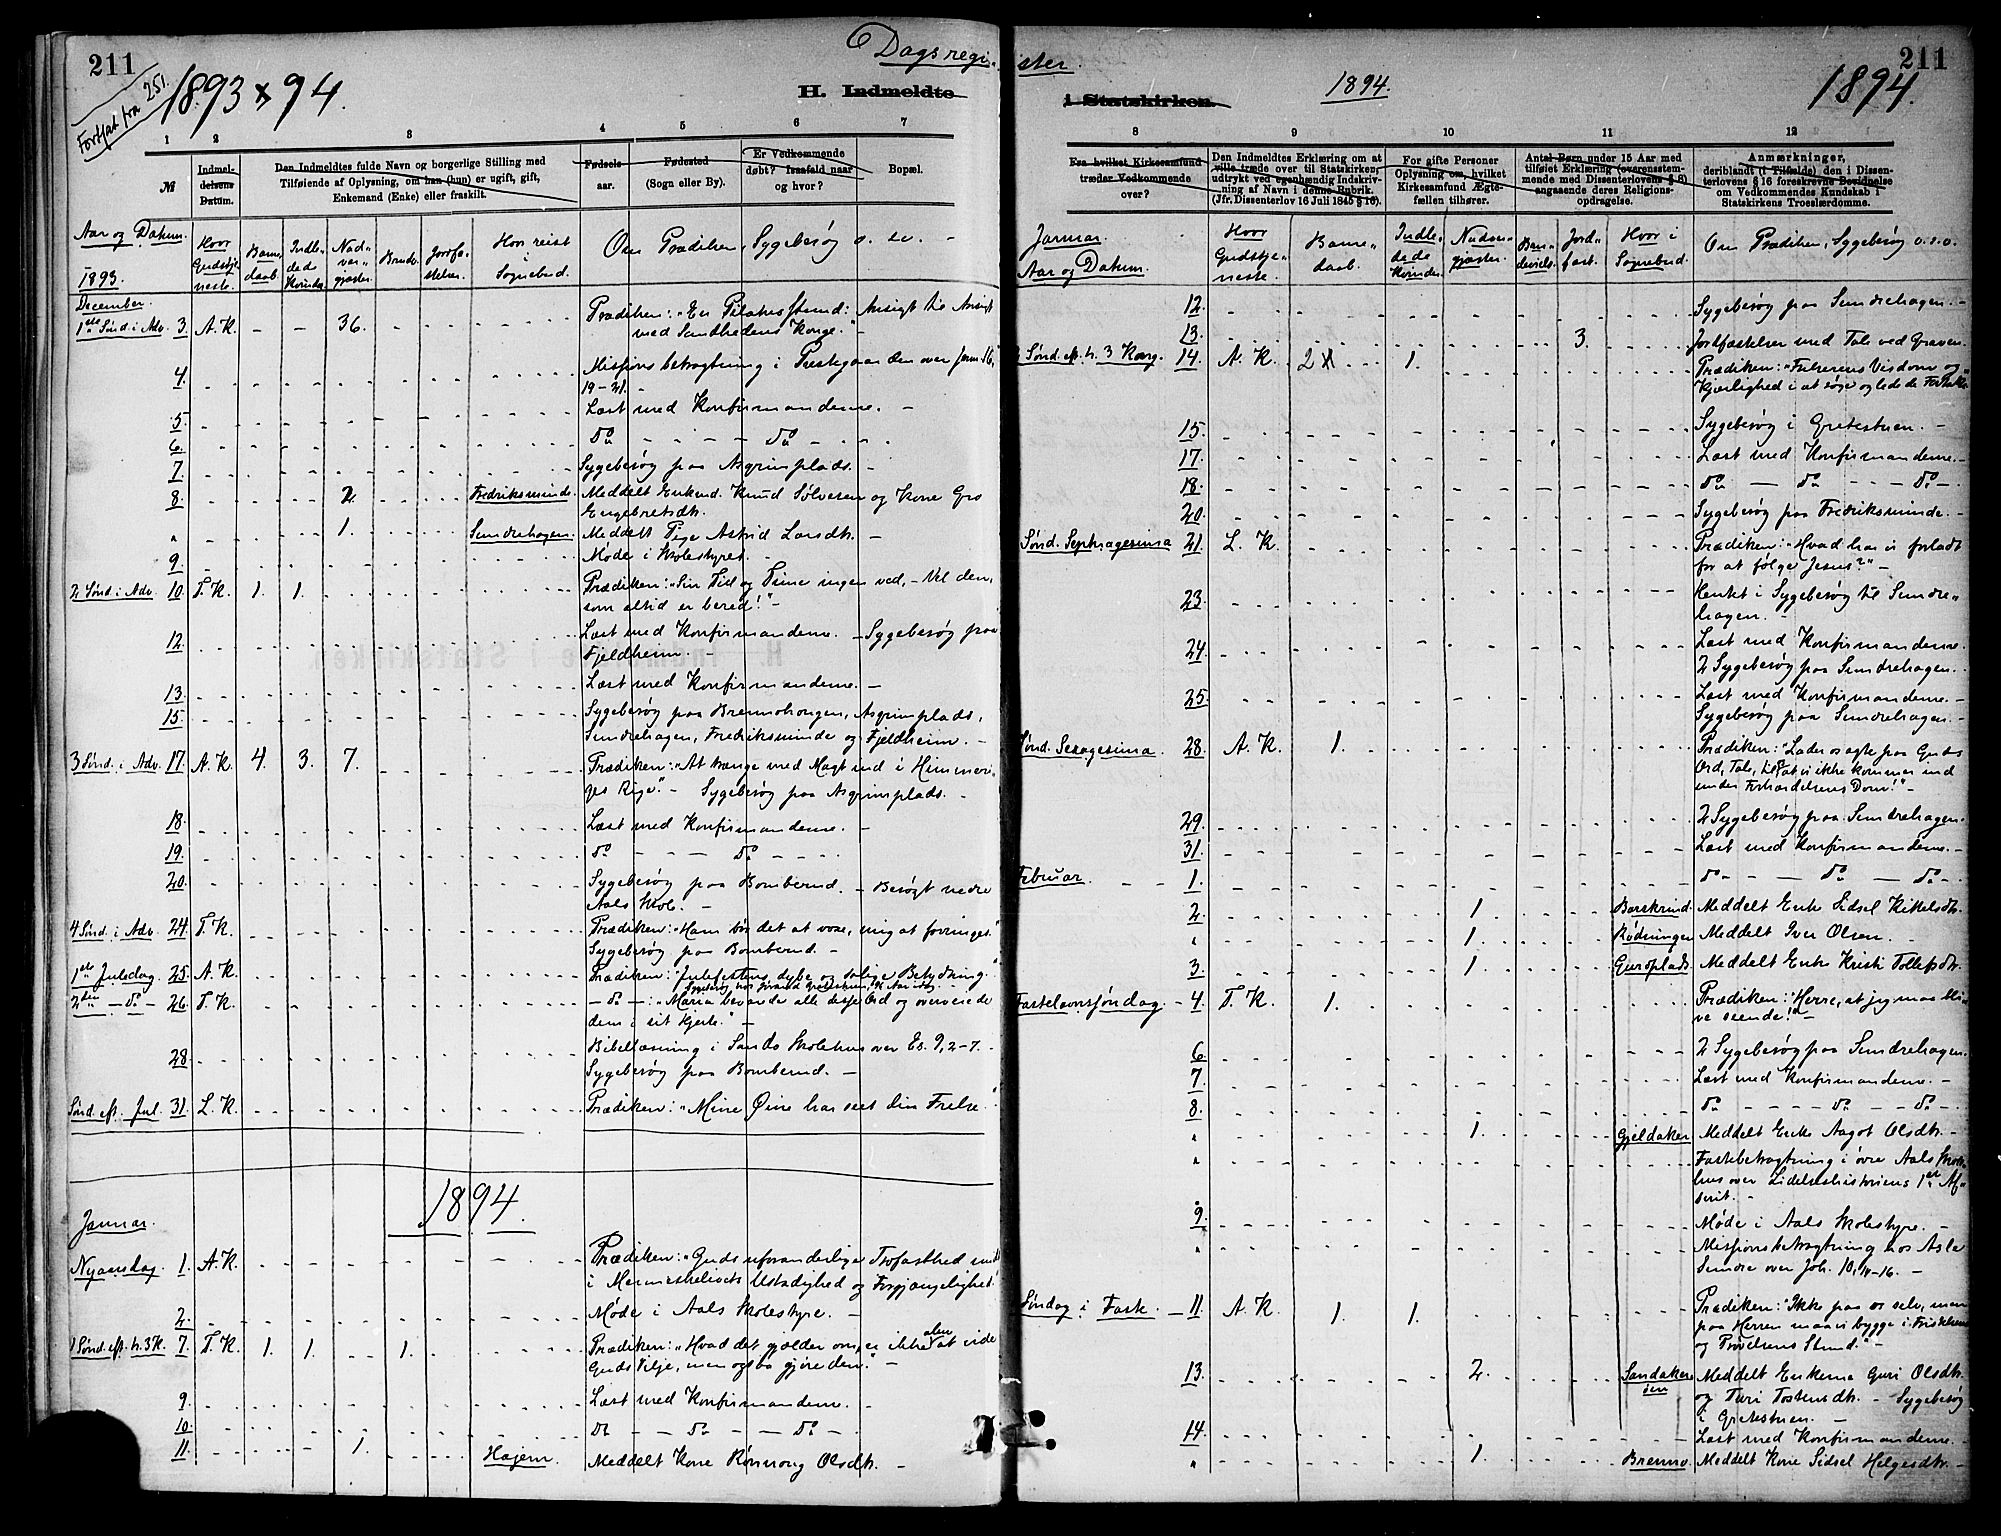 211
Fortsat fra 251.
1893 & 94.
Dagsregi-
H. Indmeldte
1 2 3 4 5 6 7
№
Indmel-
delsens
Datum.
Den Indmeldtes fulde Navn og borgerlige Stilling med
Tilføiende af Oplysning, om han (hun) er ugift, gift,
Enkemand (Enke) eller fraskilt.
Fødsels-
aar.
Fødested
(Sogn eller By).
Er Vedkommende
døbt? Isaafald naar
og hvor?
Bopæl.
Aar og Datum.
1893.
Hvor
Gudstje-
neste.
Barne-
daab.
Indle-
dede
Kvinder.
Nad-
ver-
gjæster.
Brudv.
Jordfæ-
stelser.
Hvor reist
i
Sognebud.
Om Prædiken, Sygebesøg o. s. v. -
December.
1ste Sønd. i Adv. 3. A. K. - - 36. Prædiken: "En Pilatus stund: Ansigt til Ansigt
med Sandhedens Konge." -
4. Missionsbetragtning i Prestegaarden over Jerm. 16,
19-21. -
5. Læst med Konfirmanderne. -
6. do - - - do - -
7. Sygebesøg paa Asgrimplads. -
8. 2. Fredriksminde. Meddelt Enkemd. Knud Sølvesen og Kone Gro
Engebretsdtr.
" 1. Sundrehagen. Meddelt Pige Astrid Larsdtr. -
9. Møde i Skolestyret. -
2 Sønd. i Adv. 10. T. K. 1. 1. Prædiken: "Sin Tid og Time ingen ved, - Vel den,
som altid er beredt!" -
12. Læst med Konfirmanderne. - Sygebesøg paa
Fjeldheim. -
13. Læst med Konfirmanderne. -
15. Sygebesøg paa Brennohougen, Asgrimplads,
Sundrehagen, Fredriksminde og Fjeldheim. -
3 Sønd. i Adv. 17. A. K. 4. 3. 7. Prædiken: "At trænge med Magt ind i Himmeri-
ges Rige." - Sygebesøg paa Asgrimplads. -
18. Læst med Konfirmanderne. -
19. do - - - do - - -
20. Sygebesøg paa Bomberud. - Besøgt nedre
Aals Skole. -
4 Sønd. i Adv. 24. T. K. Prædiken: "Ham bør det at voxe, mig at forringes."
Sygebesøg paa Bomberud. -
1ste Juledag. 25. A. K. Prædiken: "Julefestens dybe og salige Betydning."
2den - do - 26. T. K. - do -: "Maria bevarede alle disse Ord og overveiede
dem i sit Hjerte." -
28. Bibellæsning i Sando Skolehus over Es. 9, 2-7. -
Sygebesøg paa Bomberud. -
Sønd. eft. Jul. 31. L. K. Prædiken: "Mine Øine har seet din Frelse."
1894.
Januar.
Nyaarsdag. 1. A. K. Prædiken: "Guds uforanderlige Trofasthed midt
i Menneskelivets Ustadighed og Forgjængelighed."
2. Møde i Aals Skolestyre. -
1 Sønd. eft. h. 3 K. 7. T. K. 1. 1. 1. Prædiken: "Hvad det gjælder om, er ikke alene at vide
Guds Vilje, men ogsaa gjøre den." -
9. Læst med Konfirmanderne. -
10. do - - do - - do -
11. 1. Hagen. Meddelt Kone Rønnoug Olsdtr. -
211
ster.
1894.
1894.
i Statskirken.
8 9 10 11 12
Fra hvilket Kirkesamfund
træder Vedkommende
over?
Den Indmeldtes Erklæring om at
ville træde over til Statskirken,
udtrykt ved egenhændig Indskriv-
ning af Navn i denne Rubrik.
(Jfr. Dissenterlov 16 Juli 1845 § 16).
For gifte Personer
Oplysning om, hvilket
Kirkesamfund Ægte-
fællen tilhører.
Antal Børn under 15 Aar med
tilføiet Erklæring (overensstem-
mende med Dissenterlovens § 8)
angaaende deres Religions-
opdragelse.
Anmærkninger,
deriblandt (i Tilfælde) den i Dissen-
terlovens § 16 foreskrevne Bevidnelse
om Vedkommendes Kundskab i
Statskirkens Troeslærdomme.
Januar.
Aar og Datum.
Hvor
Gudstje-
neste.
Barne-
daab.
Indle-
dede
Kvinder.
Nadver-
gjæster.
Bru-
devielse.
Jord-
fæst.
Hvor i
Sognebud.
Om Prædiken, Sygebesøg o. s. v.
12. Sygebesøg paa Sundrehagen. -
13. 3. Jordfæstelser med Tale ved Graven.
2 Sønd. eft. h. 3 Kong. 14. A. K. 2 1. Prædiken: "Frelserens Visdom og
Kjærlighed i at søge og lede de Fortabte."
15. Sygebesøg i Gretestuen. -
17. Læst med Konfirmanderne. -
18. do - do - - - do -
20. Sygebesøg paa Fredriksminde. -
Sønd. Septuagesima 21. L. K. Prædiken: "Hvad har vi forladt
for at følge Jesus?" -
23. Hentet i Sygebesøg til Sundre-
hagen. -
24. Læst med Konfirmanderne.
2 Sygebesøg paa Sundrehagen.
25. Læst med Konfirmanderne. -
Sygebesøg paa Sundrehagen. -
Sønd. Sexagesima. 28. A. K. 1. Prædiken: "Lader os agte paa Guds
Ord, Tale, så at vi ikke kommer ind
under Forhærdelsens Dom!" -
29. 2 Sygebesøg paa Sundrehagen.
31. Læst med Konfirmanderne. -
Februar. 1. do - - do - do -
2. 1. Barskrind. Meddelt Enke Sidsel Kittelsdtr.
" 1. Rødningen Meddelt Iver Olsen. -
3. 1. Guroplads. Meddelt Enke Kristi Tollefsdtr.
Fastelavnssøndag. 4. T. K. 1. Prædiken: "Herre, at jeg maa bli-
ve seende!" -
6. 2 Sygebesøg paa Sundrehagen.
7. Læst med Konfirmanderne. -
8. do - - - do - - do -
" 1. Gjeldaker Meddelt Enke Aagot Olsdtr. -
" Fastebetragtning i øvre Aals Skole-
hus over Lidelseshistoriens 1ste Af-
snit. -
9. Møde i Aals Skolestyre. -
" Missionsbetragtning hos Asle
Sundre over Joh. 10, 14-16. -
Søndag i Faste. - 11. A. K. 1. 1. Prædiken: "Ikke paa os selv, men
paa Herren maa vi bygge i Fristelsens
og Prøvelsens Stund." -
13. 2. Sandaker-
øen Meddelt Enkerne Guri Olsdtr.
og Turi Tostensdtr. - Sygebesøg
i Gretestuen. -
14. Læst med Konfirmanderne. -
" 1. Brenno. Meddelt Kone Sidsel Helgesdtr. -